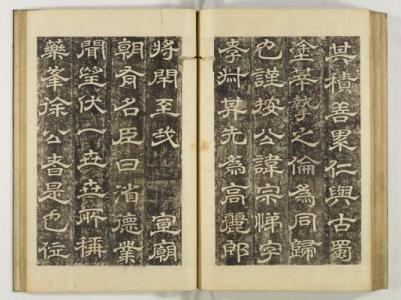 其積善累仁與古蜀
塗莘摯之倫為同歸
也謹按公諱宗悌字
孝叔其先為高麗郎
將閈至我 宣廟
朝有名臣曰渻德業
聞望伏一世世所稱
藥峯徐公者是也位